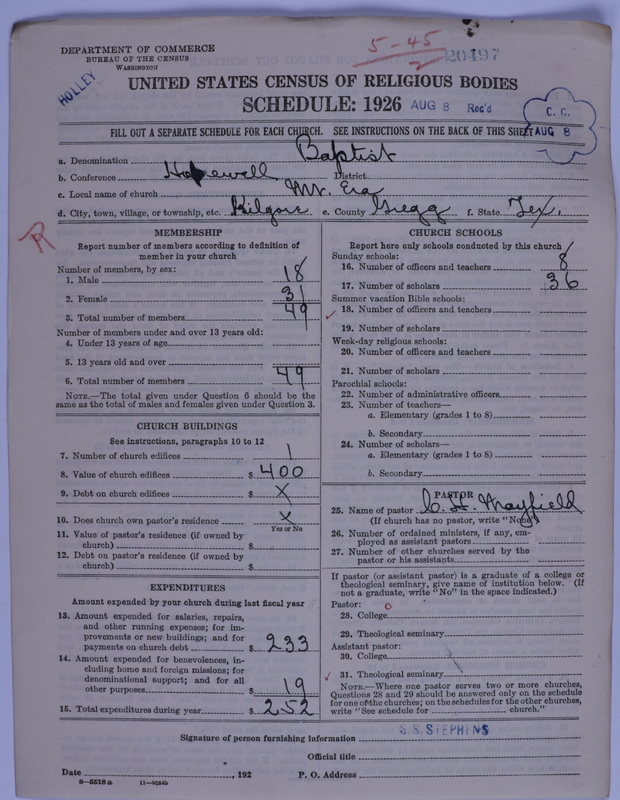 DEPARTMENT OF COMMERCE
BUREAU OF THE CENSUS
WASHINGTON
HOLLEY
5-45
2
20497
UNITED STATES CENSUS OF RELIGIOUS BODIES
SCHEDULE: 1926 AUG 8 Rec'd
C. C.
AUG 8
FILL OUT A SEPARATE SCHEDULE FOR EACH CHURCH. SEE INSTRUCTIONS ON THE BACK OF THIS SHEET
a. Denomination Baptist
b. Conference Hopewell District
c. Local name of church Mt. Era
d. City, town, village, or township, etc. Kilgore e. County Gregg f. State Tex.
R
MEMBERSHIP
Report number of members according to definition of
member in your church
Number of members, by sex:
1. Male 18
2. Female 31
3. Total number of members 49
Number of members under and over 13 years old:
4. Under 13 years of age
5. 13 years old and over
6. Total number of members 49
NOTE.—The total given under Question 6 should be the
same as the total of males and females given under Question 3.
CHURCH BUILDINGS
See instructions, paragraphs 10 to 12
7. Number of church edifices 1
8. Value of church edifices $ 400
9. Debt on church edifices $ X
10. Does church own pastor's residence X
Yes or No
11. Value of pastor's residence (if owned by
church) $
12. Debt on pastor's residence (if owned by
church) $
EXPENDITURES
Amount expended by your church during last fiscal year
13. Amount expended for salaries, repairs,
and other running expenses; for im-
provements or new buildings; and for
payments on church debt $ 233
14. Amount expended for benevolences, in-
cluding home and foreign missions; for
denominational support; and for all
other purposes $ 19
15. Total expenditures during year $ 252
CHURCH SCHOOLS
Report here only schools conducted by this church
Sunday schools:
16. Number of officers and teachers 8
17. Number of scholars 36
Summer vacation Bible schools:
18. Number of officers and teachers
19. Number of scholars
Week-day religious schools:
20. Number of officers and teachers
21. Number of scholars
Parochial schools:
22. Number of administrative officers
23. Number of teachers—
a. Elementary (grades 1 to 8)
b. Secondary
24. Number of scholars—
a. Elementary (grades 1 to 8)
b. Secondary
PASTOR
25. Name of pastor C. H. Mayfield
(If church has no pastor, write "None")
26. Number of ordained ministers, if any, em-
ployed as assistant pastors
27. Number of other churches served by the
pastor or his assistants
If pastor (or assistant pastor) is a graduate of a college or
theological seminary, give name of institution below. (If
not a graduate, write "No" in the space indicated.)
Pastor: O
28. College
29. Theological seminary
Assistant pastor:
30. College
31. Theological seminary
NOTE.—Where one pastor serves two or more churches,
Questions 28 and 29 should be answered only on the schedule
for one of the churches; on the schedules for the other churches,
write "See schedule for church."
Signature of person furnishing information S.S. STEPHENS
Official title
Date , 192 P. O. Address
8—5518a 11—9554b